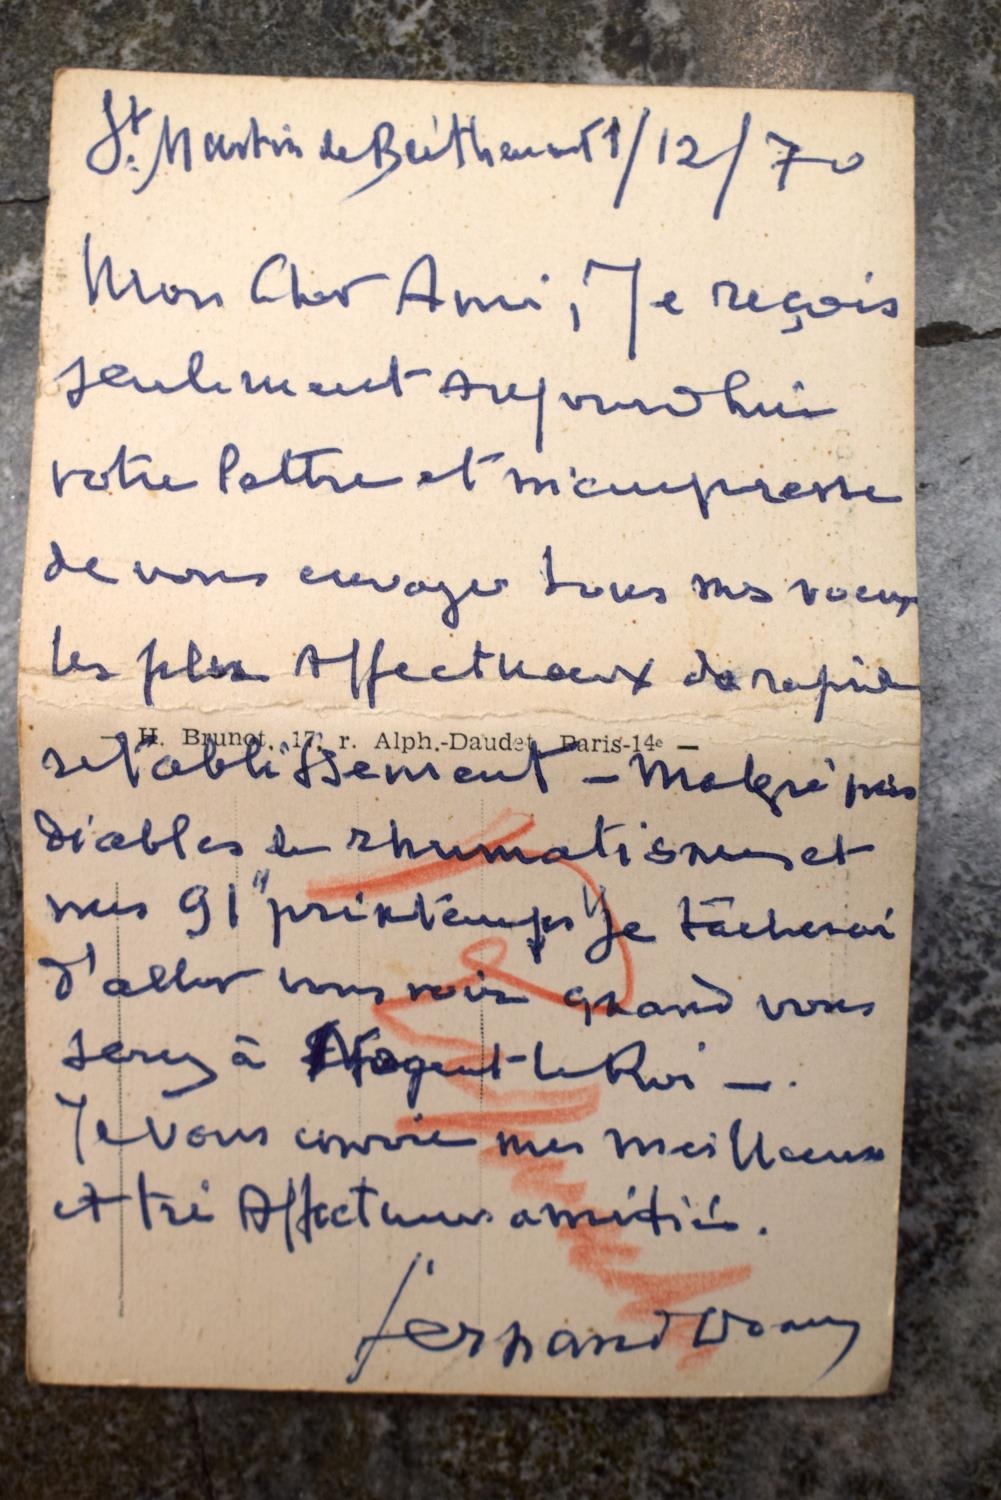 St. Martin de Bréthencourt 1/12/70
Mon Cher Ami, Je reçois
seulement aujourd'hui
votre lettre et m'empresse
de vous envoyer tous mes voeux
les plus Affectueux de rapide
— H. Brunot, 17, r. Alph.-Daudet, Paris-14e —
retablissement - Malgré
diables de rhumatismes et
mes 91 "printemps" Je tâcherai
d'aller vous voir quand vous
serez à Nogent le Roi —.
Je vous envoie mes meilleures
et tré Affectueuses amitiés.
Fernand